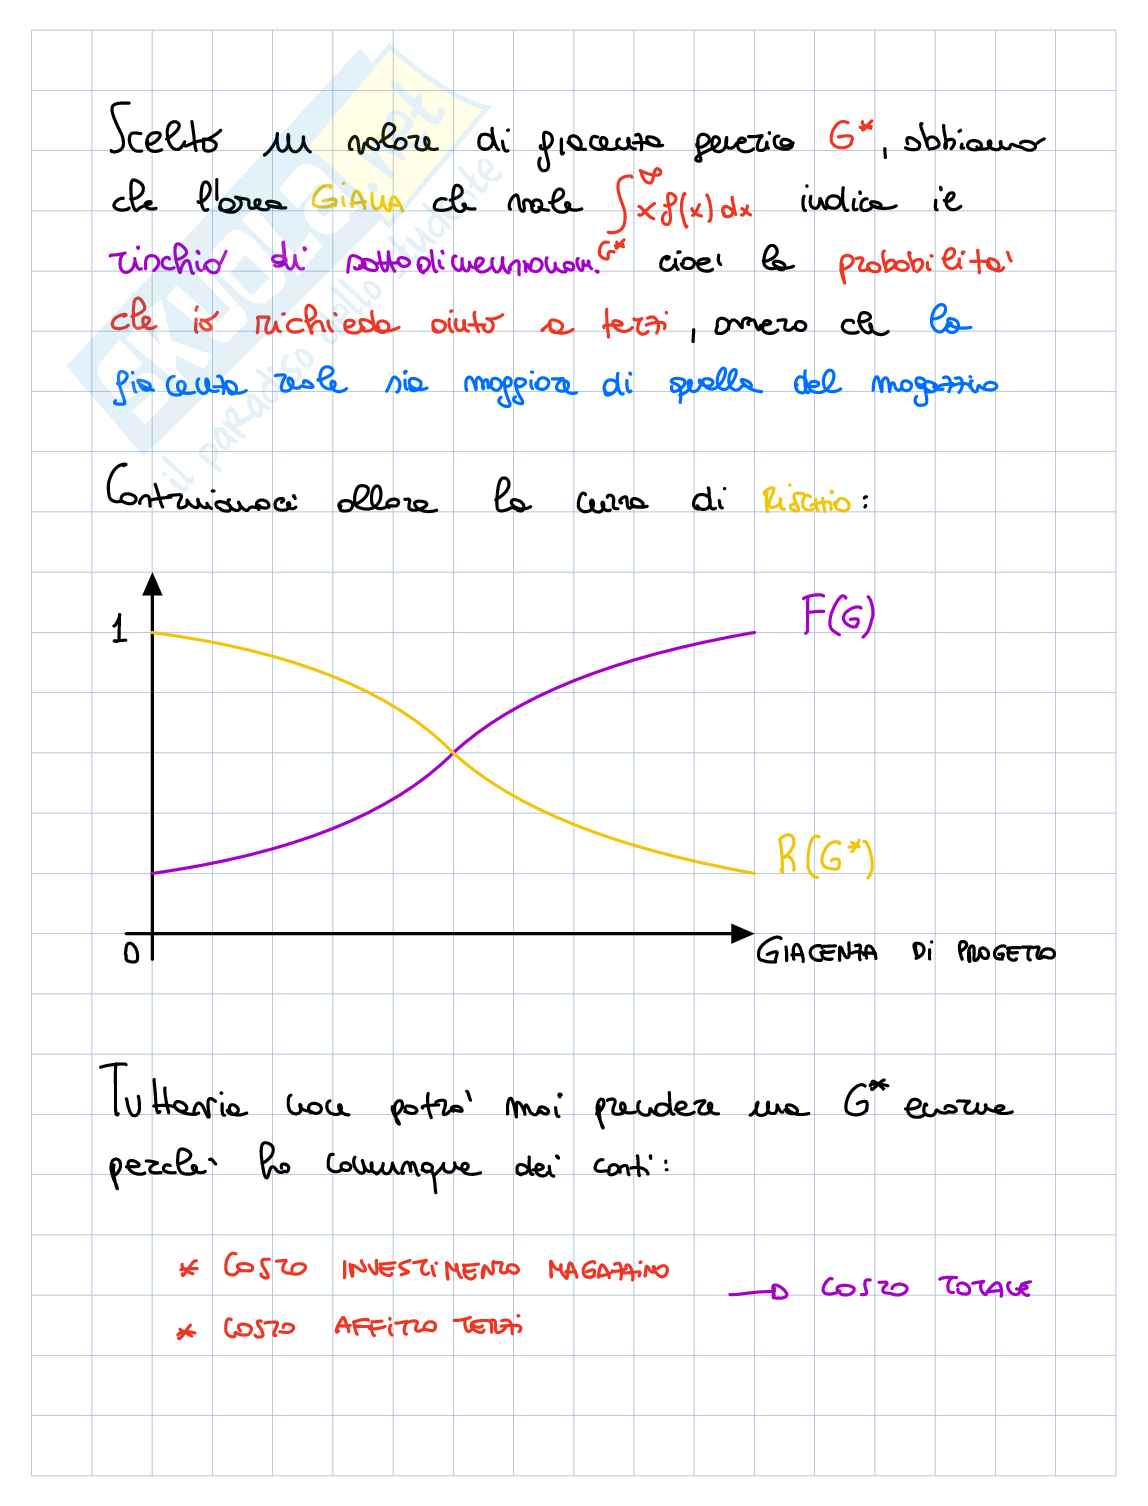 Scelto un valore di giacenza generico G*, abbiamo
che l'area GIALLA che vale ∫G*^∞ x f(x) dx indica il
rischio di sottodimensionam. cioè la probabilità
che io richieda aiuto a terzi, ovvero che la
giacenza reale sia maggiore di quella del magazzino
Costruiamoci allora la curva di RISCHIO:
1
F(G)
R(G*)
0
GIACENZA DI PROGETTO
Tuttavia non potrò mai prendere una G* enorme
perché ho comunque dei costi:
* COSTO INVESTIMENTO MAGAZZINO
→ COSTO TOTALE
* COSTO AFFITTO TERZI
SKUOLA.net
il paradiso dello studente